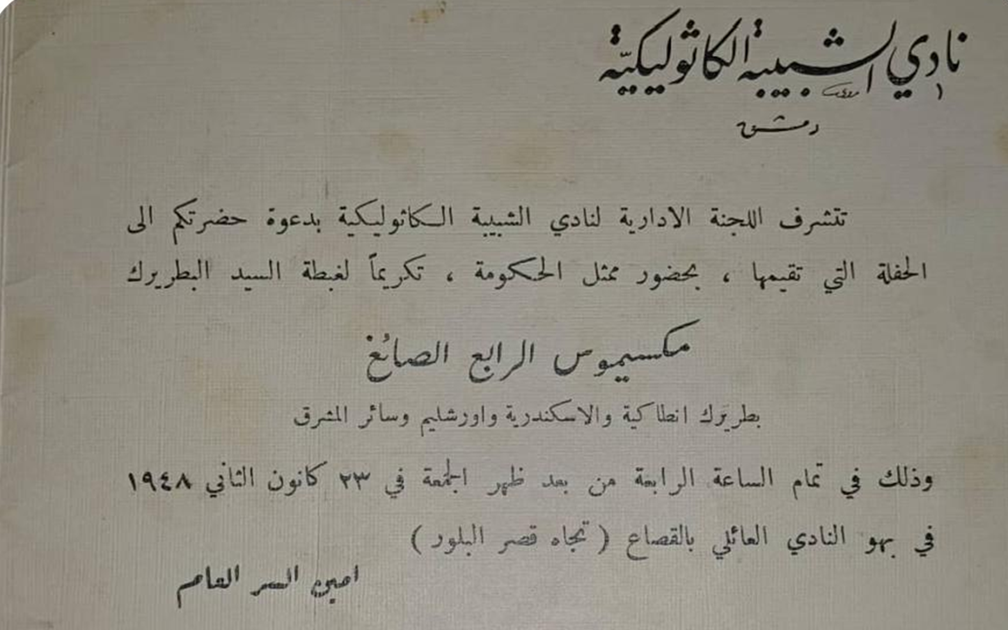 نادي الشبيبة الكاثوليكيّة
دمشق
تتشرف اللجنة الادارية لنادي الشبيبة الكاثوليكية بدعوة حضرتكم الى
الحفلة التي تقيمها ، بحضور ممثل الحكومة ، تكريماً لغبطة السيد البطريرك
مكسيموس الرابع الصائغ
بطريرك انطاكية والاسكندرية واورشليم وسائر المشرق
وذلك في تمام الساعة الرابعة من بعد ظهر الجمعة في ٢٣ كانون الثاني ١٩٤٨
في بهو النادي العائلي بالقصاع ( تجاه قصر البلور )
امين السر العام